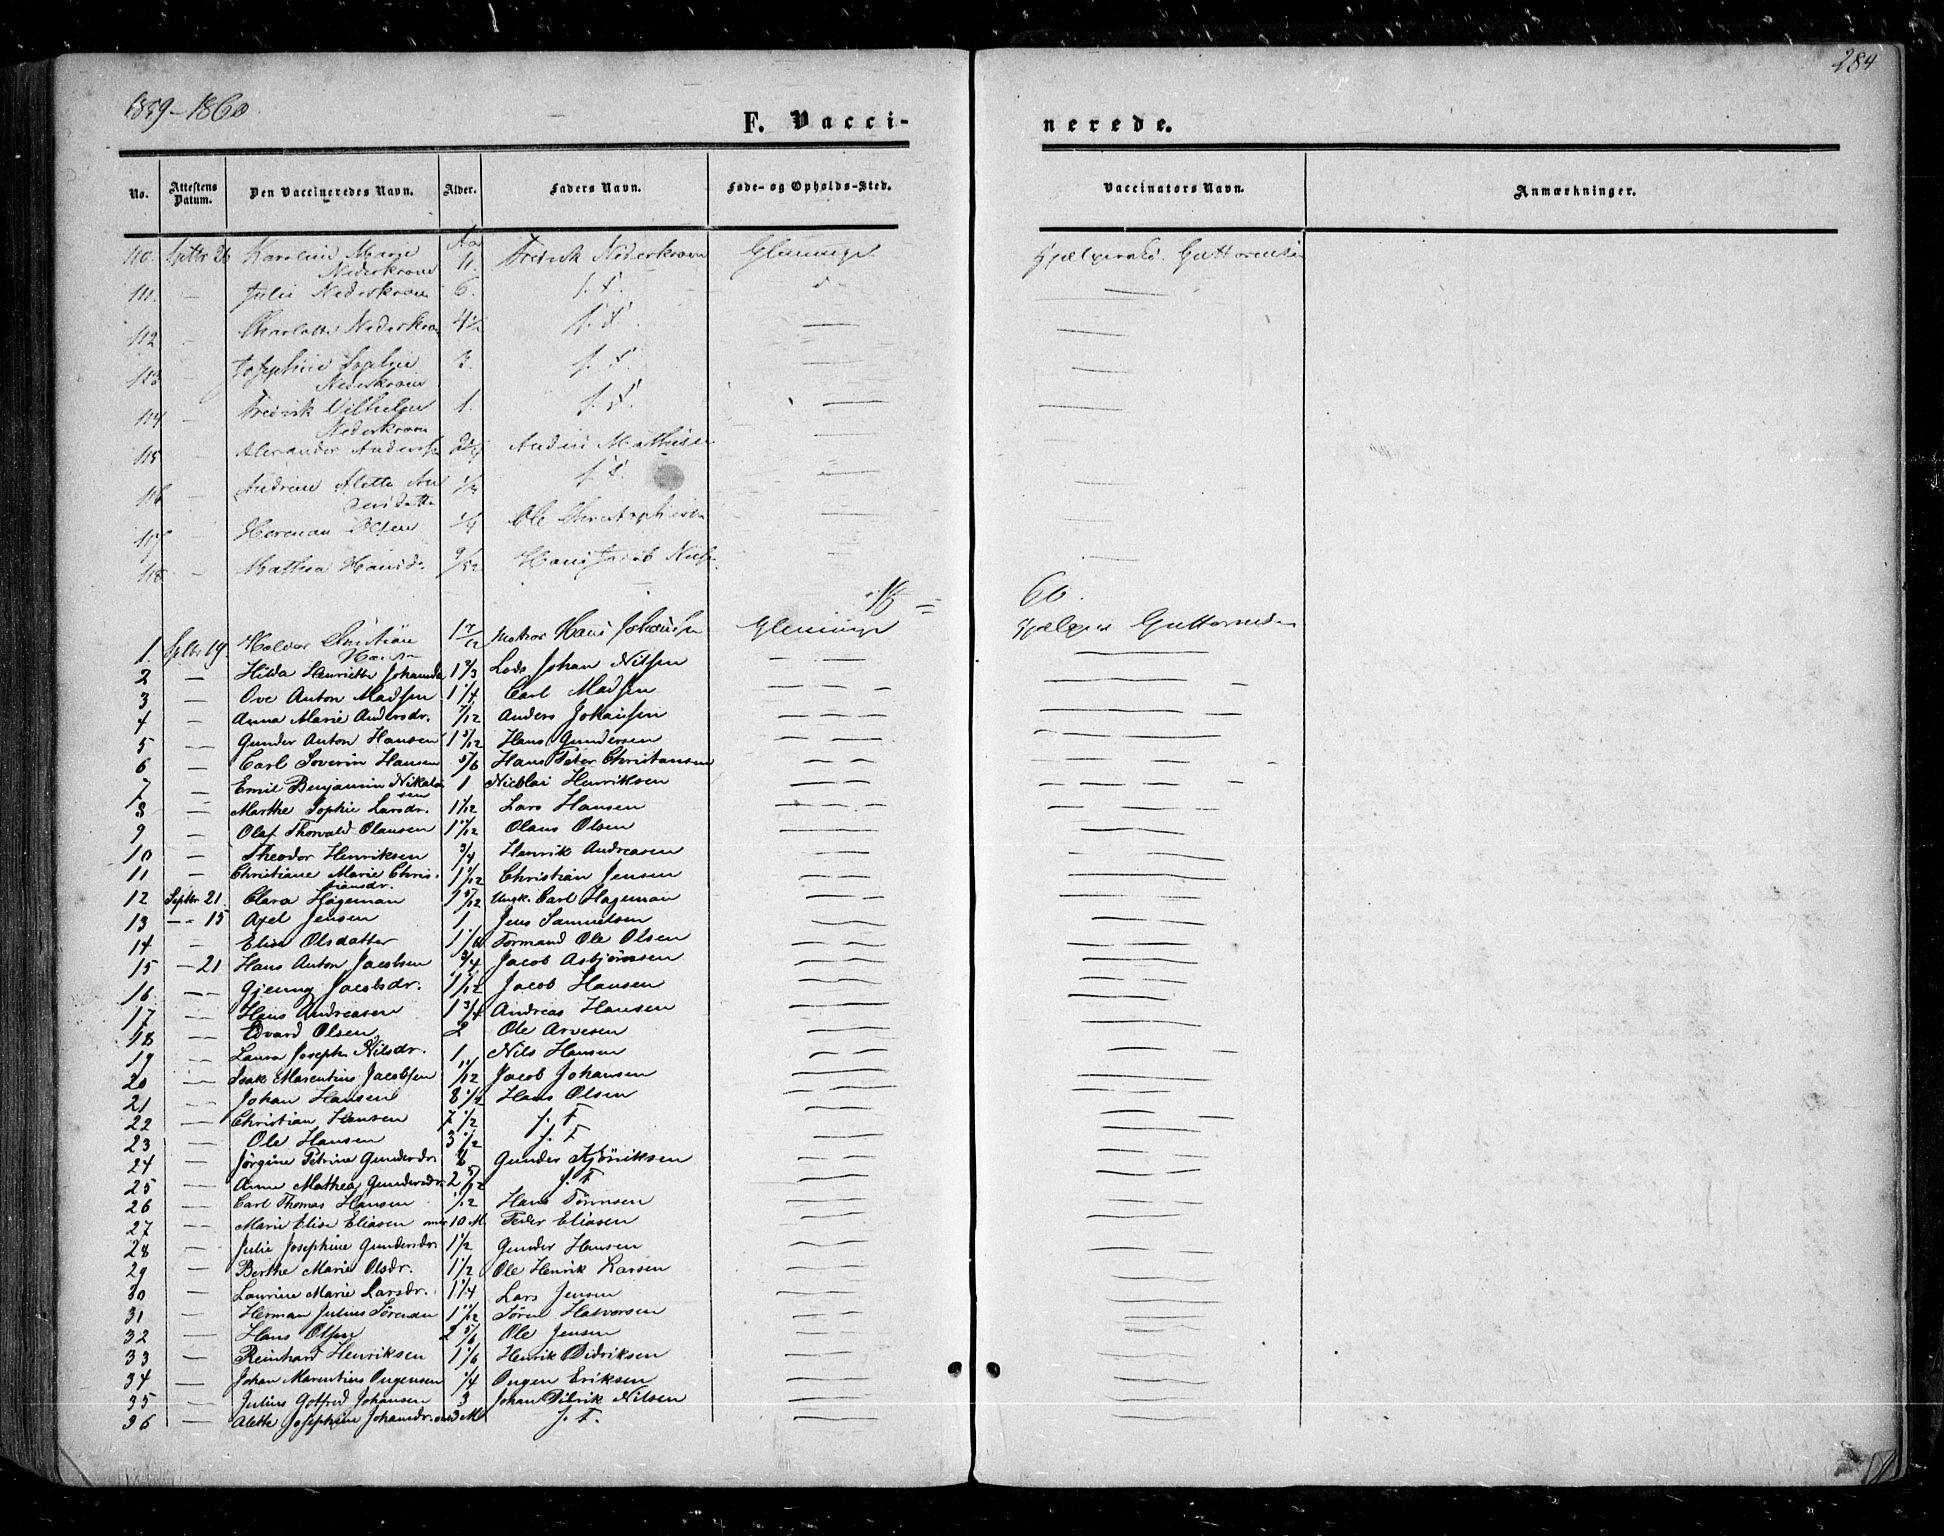 284
1859-1860
F. Vacci-
nerede.
No. Attestens Datum. Den Vaccineredes Navn. Alder. Faders Navn. Føde- og Opholds-Sted. Vaccinators Navn. Anmærkninger.
110. Septbr 26 Karoline Marie Nederkroon Aar 11. Fredrik Nederkroon Glemmige Guttormsen
111. — Julie Nederkroon 6. s. F.
112 - Charlotte Nederkroon 4 1/2 s. F. —
113 - Josephine Sophie Nederkroon 3. s. F. —
114 - Fredrik Vilhelm Nederkroon 1. s. F. —
115 - Alexander Anders 2 1/4 Anders Mathisen —
116 - Andrine Alette Andersdatter s. F. —
117 - Herman Olsen 1/4 Ole Christophersen —
118 - Mathea Hansdr 9/12 Hans Jacob Niels —
18 = 60.
1. Septbr 19. Christian Hansen 1 7/12 Matros Hans Johansen Glemmige Guttormsen
2 — Hilda Henriette Johansdr 1 2/3 Lods Johan Nilsen — —
3 — Ove Anton Madsen 1 1/4 Carl Madsen — — —
4 — Anna Marie Andersdr. 7/12 Anders Johansen — — —
5 — Gunder Anton Hansen 1 5/12 Hans Gundersen — — —
6 — Carl Severin Hansen 5/6 Hans Peter Christiansen — —
7 — Emil Benjamin Nikolaisen 1 Nicolai Henriksen — — —
8 — Marthe Sophie Larsdr. 1 1/12 Lars Hansen — —
9 — Olaf Thorvald Olausen 1 11/12 Olaus Olsen —
10 — Theodor Henriksen 3/4 Henrik Andreasen —
11 — Christiane Marie Christiansdr. 1 1/12 Christian Jensen —
12 Septbr 21. Clara Hageman 1 5/12 Ungk. Carl Hageman —
13 — 15 Axel Jensen 1. Jens Samuelsen —
14 — Elise Olsdatter 1 1/6 Formand Ole Olsen —
15 — 21 Hans Anton Jacobsen 3/4 Jacob Asbjørnsen —
16 — Jacobsdr. 1 1/12 Jacob Hansen —
17 — Hans Andreasen 1 3/4 Andreas Hansen —
18 — Edvard Olsen 2 Ole Arvesen —
19 — Laura Joseph. Nilsdr. 1 Nils Hansen —
20 — Isak Marentius Jacobsen 11/12 Jacob Johansen —
21 — Johan Hansen 8 1/2 Hans Olsen —
22 — Christian Hansen 7 1/2 s. F —
23 — Ole Hansen 3 1/2 s. F —
24 — Jørgine Petrine Gundersdr 6 Gunder —
25 — Anne Mathea Gundersdr. 2 5/12 s. F —
26 — Carl Thomas Hansen 1/12 Hans Tønnsen —
27 — Marie Elise Eliasen 10 M. Peder Eliasen —
28 — Julie Josephine Gundersdr 1 1/2 Gunder Hansen —
29 — Berthe Marie Olsdr. 1 1/2 Ole Henrik Larsen —
30 — Laurine Marie Larsdr. 1 1/4 Lars Jensen —
31 — Herman Julius Sørensen 1 11/12 Søren Halvorsen —
32 — Hans Olsen 2 5/6 Ole Jensen —
33 — Reinhard Henriksen 1 1/6 Henrik Didriksen —
34 — Johan Marentius Ougensen 1/4 Ougen Eriksen —
35 — Julius Gotfred Johansen 3 Johan Didrik Nilsen —
36 — Alette Josephine Johansdr. 3 M. s. F. —